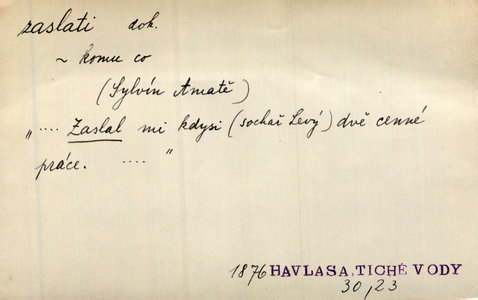 zaslati dok.
~ komu co
(Sylvín Amatě)
„.... Zaslal mi kdysi (sochař Levý) dvě cenné
práce. .... "
1876 HAVLASA, TICHÉ VODY
30, 23